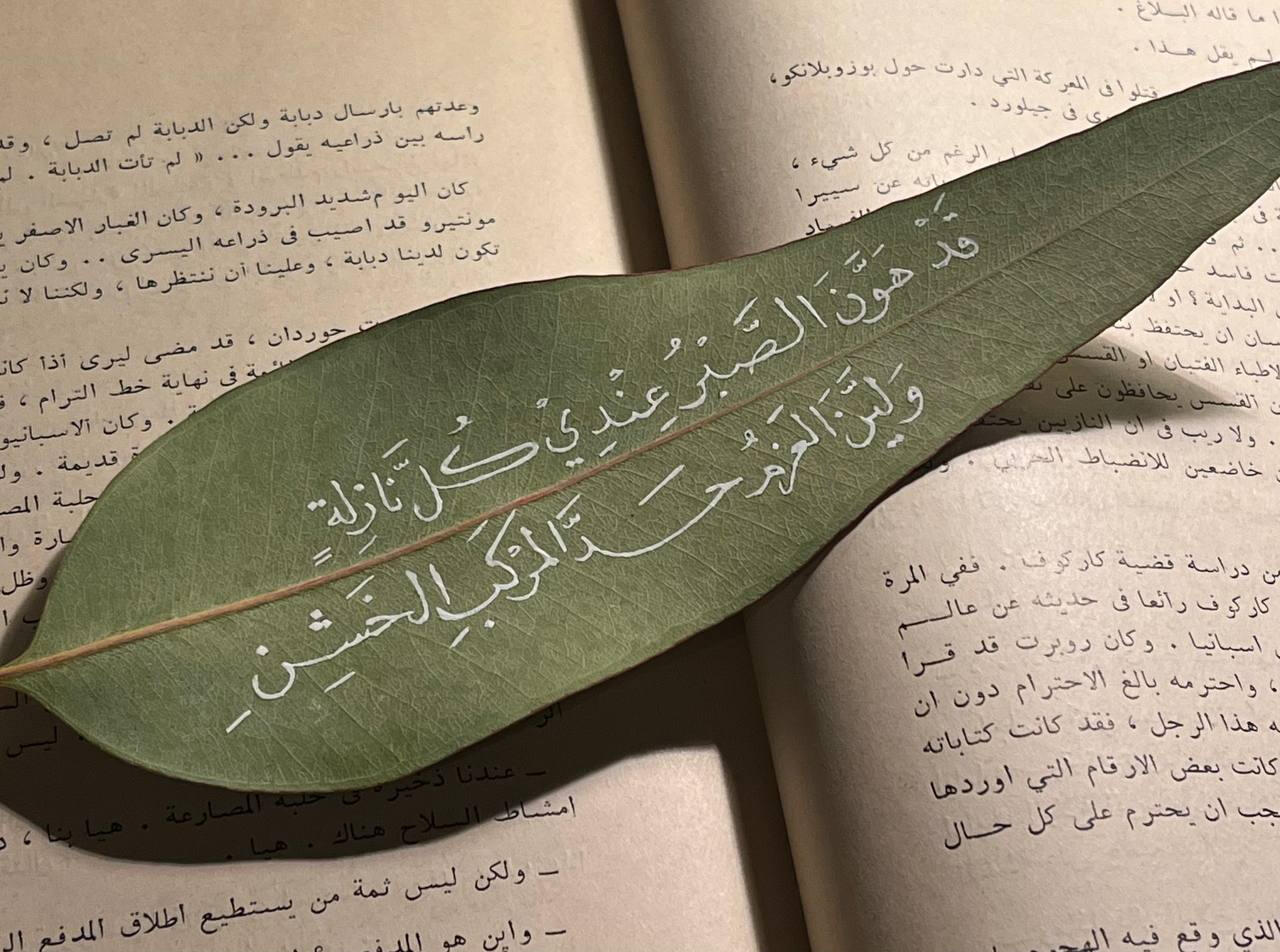 قَدْ هَوَّنَ الصَّبْرُ عِنْدِيْ كُلَّ نَازِلةٍ
وَلَيَّنَ العَزْمُ حَدَّ المَرْكَبِ الخَشِنِ
وعدتهم بارسال دبابة ولكن الدبابة لم تصل ، وقد
راسه بين ذراعيه يقول ... « لم تأت الدبابة . لم
كان اليو مشديد البرودة ، وكان الغبار الاصفر
مونتيرو قد اصيب فى ذراعه اليسرى .. وكان
تكون لدينا دبابة ، وعلينا أن ننتظرها ، ولكننا لا
جوردان ، قد مضى ليرى أذأ
فى نهاية خط الترام ،
. وكان الاسبانيو
قديمة .
حلبة
. ليس
ـ عندنا ذخيرة فى حلبة المصارعة . هيا بنا ،
امشاط السلاح هناك . هيا .
ـ ولكن ليس ثمة من يستطيع اطلاق المدفع
ـ واين هو المدفع
ما قاله البلاغ .
لم يقل هذا .
قتلوا فى المعركة التي دارت حول بوزوبلانكو،
فى جيلورد .
الرغم من كل شيء ،
عن سييرا
فاسد
البداية ؟ او
ان يحتفظ
الاطباء الفتيان او القسس
القسس يحافظون على
. ولا ريب فى ان النازيين
خاضعين للانضباط الحربي .
من دراسة قضية كاركوف . ففي المرة
كاركوف رائعا فى حديثه عن عالـــم
اسبانيا . وكان روبرت قد قـــرا
، واحترمه بالغ الاحترام دون ان
هذا الرجل ، فقد كانت كتاباته
كانت بعض الارقام التي اوردها
يجب ان يحترم على كل حـــال
الذي وقع فيه الهجوم